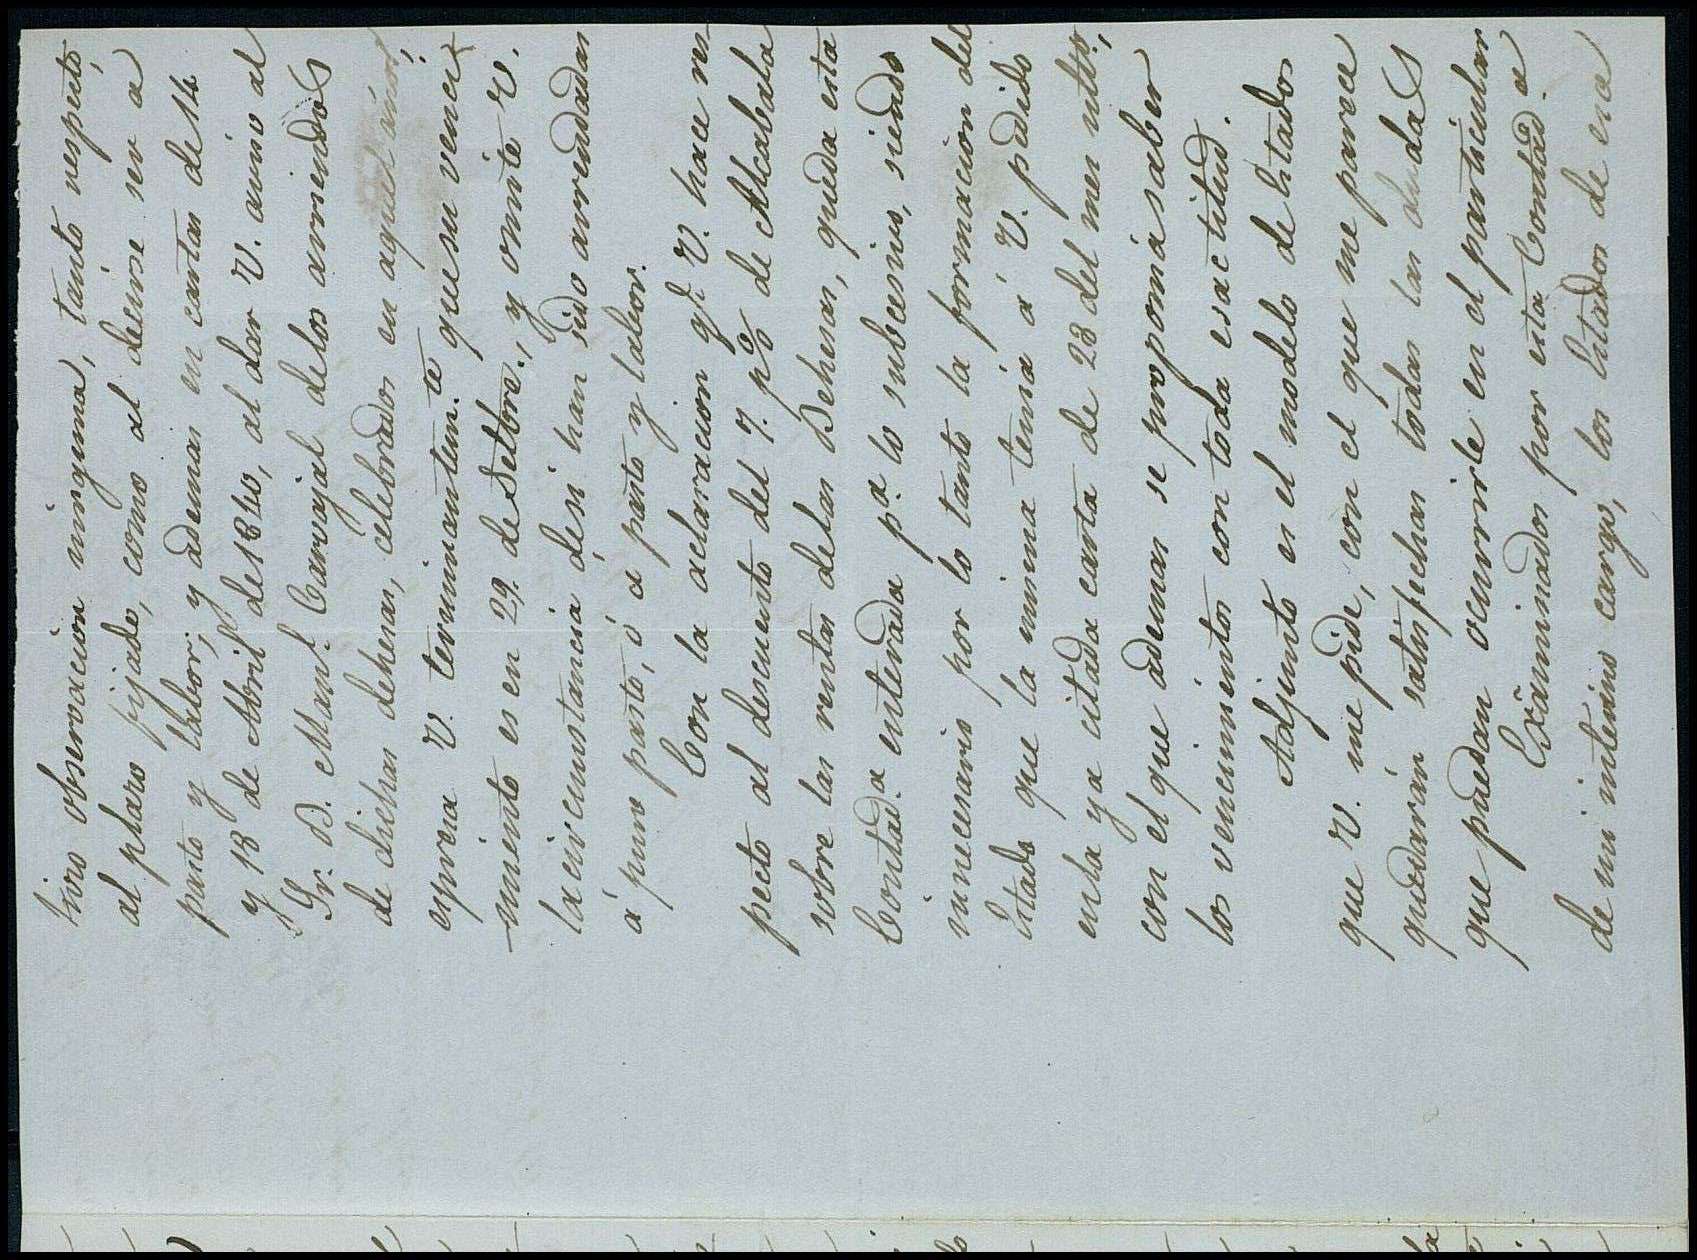 hizo observacion ninguna, tanto respecto
al plazo fijado, como al decirse ser a
pasto y labor; y ademas en cartas de 14
y 18 de Abril de 1840, al dar V. aviso al
Sr. D. Man.l Carvajal de los arriendos
de dichas dehesas, celebrados en aquel
espresa V. terminantem.te que su venci
miento es en 29, de Setbre., y omite V.
la circunstancia de si han sido arrendadas
á puro pasto, ó á pasto y labor.
Con la aclaracion q.e V. hace res
pecto al descuento del 7. p% de Alcabala
sobre las rentas de las Dehesas, queda esta
Contad.a enterada p.a lo subcesivo, siendo
innecesario por lo tanto la formacion del
Estado que la misma tenia á V. pedido
en la ya citada carta de 28 del mes ultio.,
con el que ademas se proponia saber
los vencimientos con toda esactitud.
Adjunto es el modelo de Estados
que V. me pide, con el que me parece
quedarán satisfechas todas las dudas
que puedan ocurrirle en el particular
Examinados por esta Contad.a
de mi interino cargo, los Estados de esa